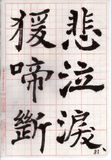 悲泣淚
猨啼斷